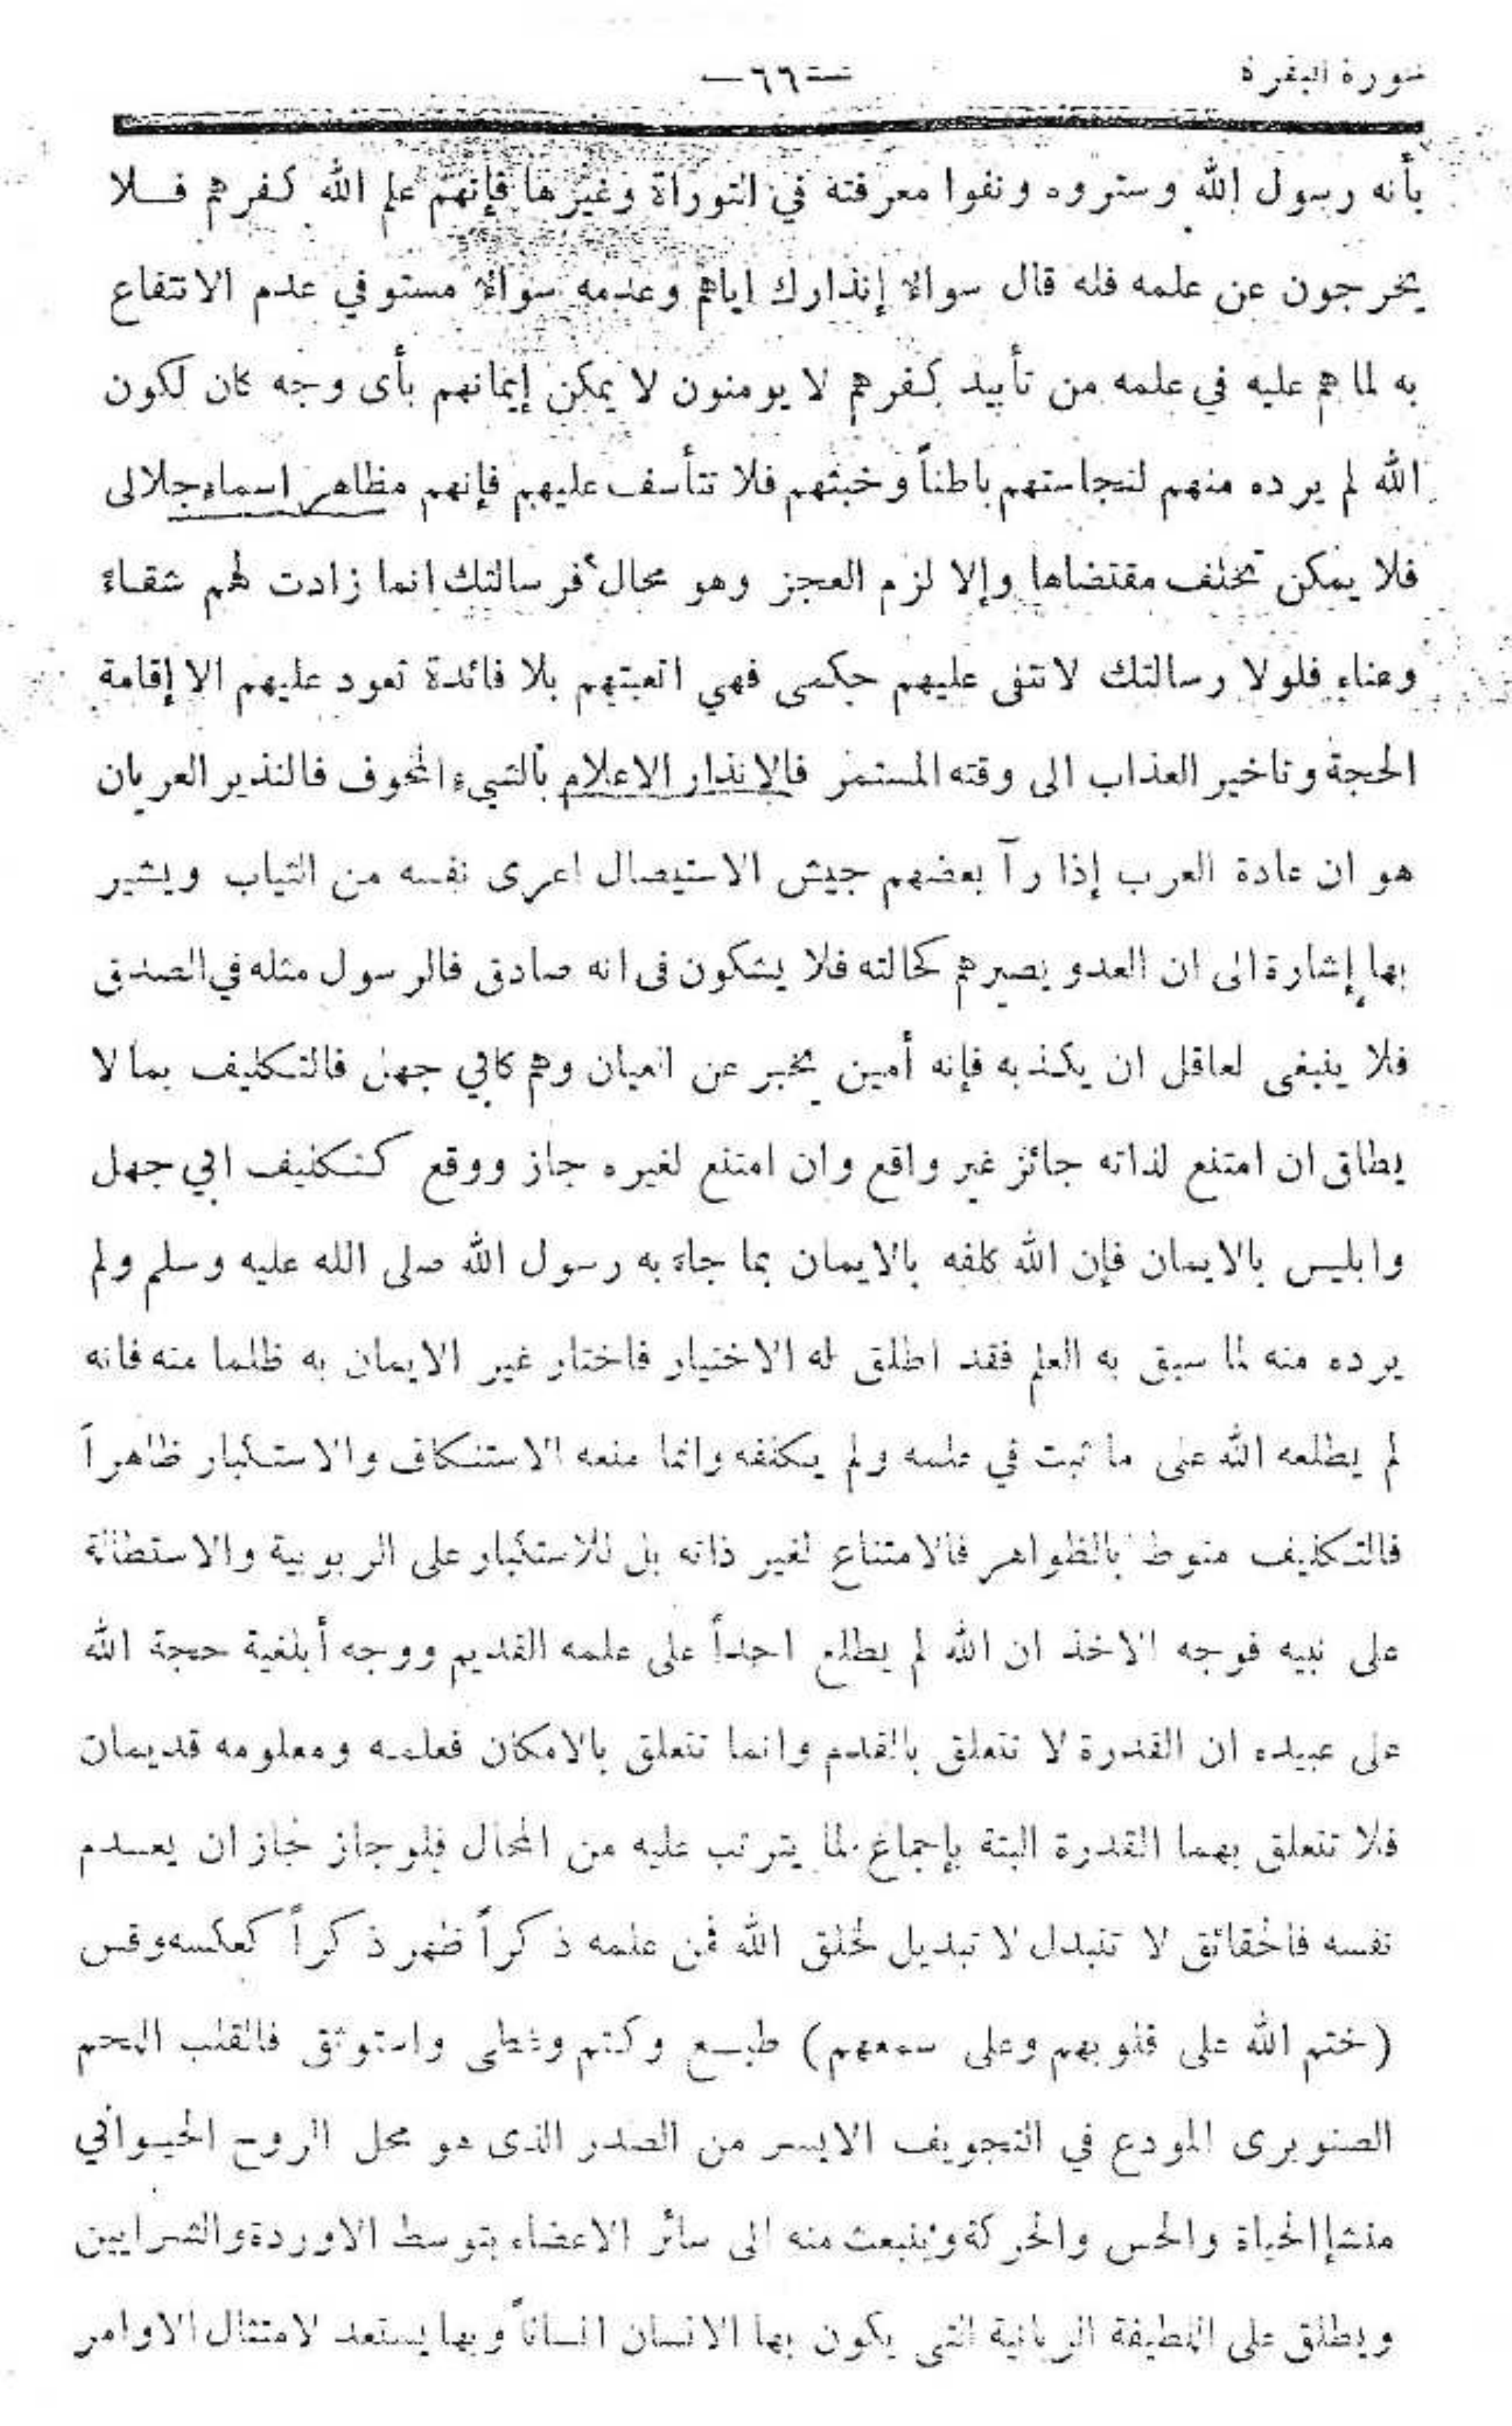 سورة البقرة
—٦٦—
بأنه رسول الله وستروه ونفوا معرفته في التوراة وغيرها فإنهم علم الله كفرهم فلا
يخرجون عن علمه فله قال سواء إنذارك اياهم وعدمه سواء مستو في عدم الانتفاع
به لما هم عليه في علمه من تأبيد كفرهم لا يومنون لا يمكن إيمانهم بأى وجه كان لكون
الله لم يرده منهم لنجاستهم باطناً وخبثهم فلا تتأسف عليهم فإنهم مظاهر اسماء جلالى
فلا يمكن تخلف مقتضاها وإلا لزم العجز وهو محال فرسالتك انما زادت لهم شقاء
وعناء فلولا رسالتك لاتنفى عليهم حكمى فهي اتعبتهم بلا فائدة تعود عليهم الا إقامة
الحجة وتاخير العذاب الى وقته المستمر فالإنذار الاعلام بالشيء المخوف فالنذير العريان
هو ان عادة العرب إذا رآ بعضهم جيش الاستيصال اعرى نفسه من الثياب ويشير
بها إشارة الى ان العدو يصيرهم كحالته فلا يشكون فى انه صادق فالرسول مثله في الصدق
فلا ينبغى لعاقل ان يكذبه فإنه أمين يخبر عن العيان وهم كابي جهل فالتكليف بما لا
يطاق ان امتنع لذاته جائز غير واقع وان امتنع لغيره جاز ووقع كتكليف ابي جهل
وابليس بالايمان فإن الله كلفه بالايمان بما جاء به رسول الله صلى الله عليه وسلم ولم
يرده منه لما سبق به العلم فقد اطلق له الاختيار فاختار غير الايمان به ظلما منه فانه
لم يطلعه الله على ما ثبت في علمه ولم يكلفه وانما منعه الاستنكاف والاستكبار ظاهراً
فالتكليف منوط بالظواهر فالامتناع لغير ذاته بل للاستكبار على الربوبية والاستطالة
على نبيه فوجه الاخذ ان الله لم يطلع احداً على علمه القديم ووجه أبلغية حجة الله
على عبيده ان القدرة لا تتعلق بالقدم وانما تتعلق بالامكان فعلمه ومعلومه قديمان
فلا تتعلق بهما القدرة البتة بإجماع لما يترتب عليه من المحال فلو جاز لجاز ان يعدم
نفسه فالحقائق لا تتبدل لا تبديل لخلق الله فمن علمه ذكراً ظهر ذكراً كعكسه وقس
(ختم الله على قلوبهم وعلى سمعهم) طبع وكتم وغطى واستوثق فالقلب اللحم
الصنوبرى المودع في التجويف الايسر من الصدر الذى هو محل الروح الحيواني
منشإ الحياة والحس والحركة وينبعث منه الى سائر الاعضاء بتوسط الاوردة والشرايين
ويطلق على اللطيفة الربانية التى يكون بها الانسان انساناً وبها يستعد لامتثال الاوامر